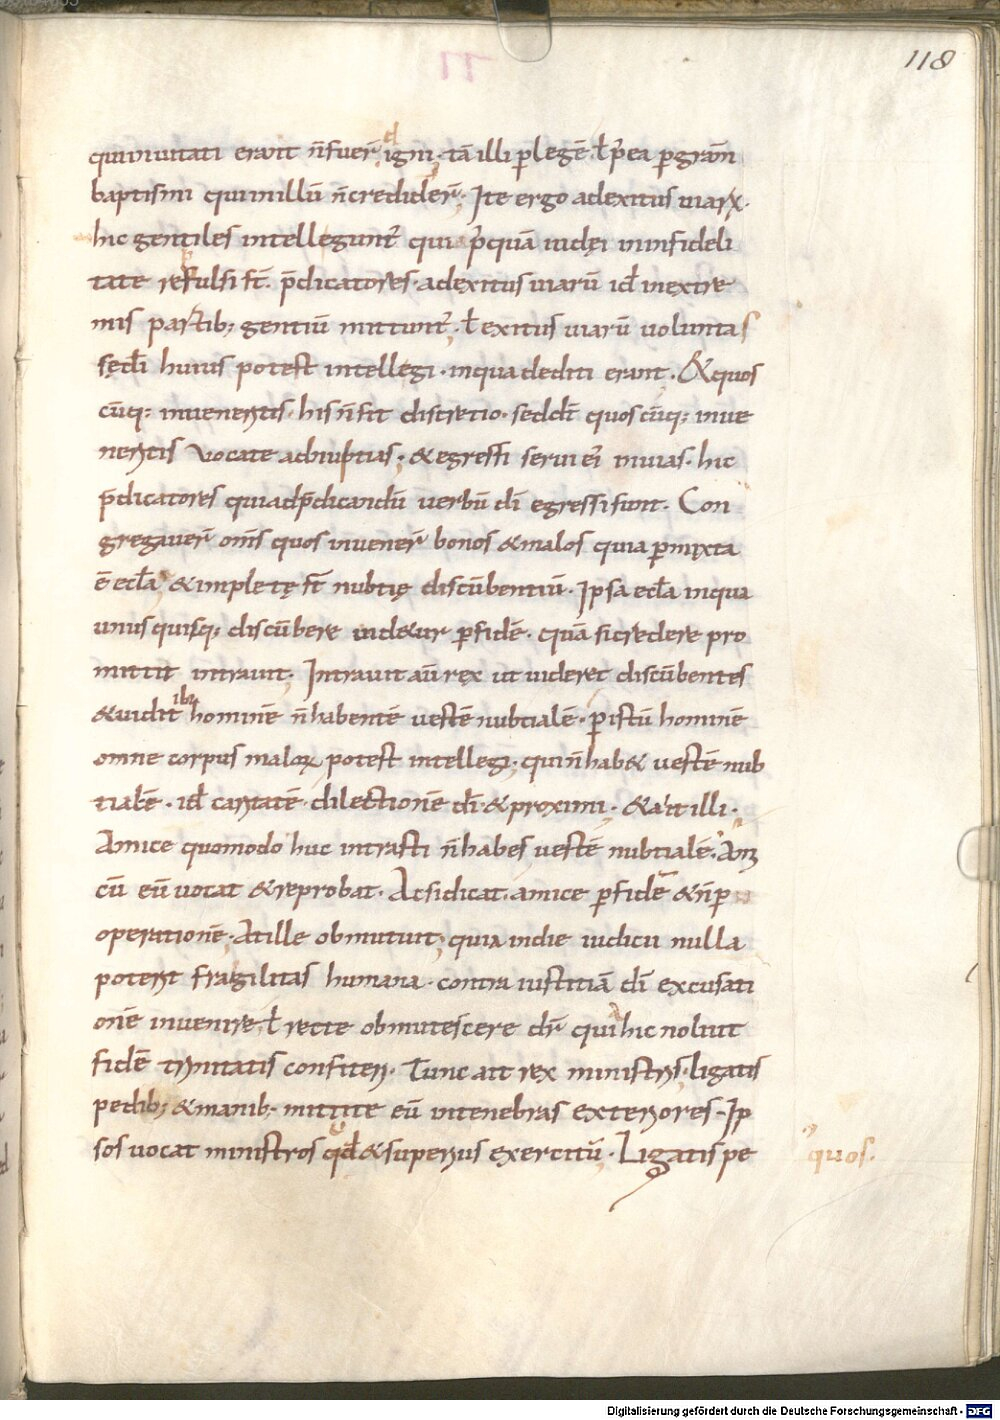 118
quinuitati erant n̄ fuer̄ digni, tā illi ꝑ legē ł p̄ ea ꝑ gr̄am
baptismi qui in illū n̄ credider̄. Ite ergo ad exitus uiaꝝ.
hic gentiles intellegunt̄ qui p̄quā iudęi in infideli
tate refulsi st̄. p̄dicatores. ad exitus uiarū id ̄ in extre
mis partib; gentiū mittunt̄, ł exitus uiarū uoluntas
sęcłi huius potest intellegi. in qua dediti erant. & quos
cūq; inueneritis. his n̄ fit discretio. sed dt̄ quos cūq; inue
neritis uocate ad nuptias, & egressi serui ei' in uias. hic
p̄dicatores qui ad p̄dicandū uerbū dī egressi sunt. Con
gregauer̄ om̄s quos inuener̄ bonos & malos quia ꝑmixta
ē eccła & impletę st̄ nubtię discūbentiū. Ipsa eccła in qua
unusquisq; discūbere uidetur ꝑ fidē. quā si credere pro
mittit intrauit. Intrauit aū rex ut uideret discūbentes
& uidit ibi hominē n̄ habentē uestē nubtialē. ꝑ istū hominē
omne corpus maloꝝ potest intellegi. qui n̄ hab& uestē nub
tialē. id ̄ caritatē. dilectionē dī & proximi. & ait illi.
Amice quomodo huc intrasti n̄ habes uestē nubtialē. Am
cū eū uocat & reprobat. Ac si dicat. amice ꝑ fidē & n̄ ꝑ
operationē. At ille obmutuit, quia in die iudicii nulla
poterit fragilitas humana. contra iustitiā dī excusati
onē inuenire, ł recte obmutescere dr̄ qui hic noluit
fidē trinitatis confiteri. Tunc ait rex ministris, ligatis
pedib; & manib; mittite eū in tenebras exteriores. Ip
sos uocat ministros quod & superius exercitū. Ligatis pe
quos.
Digitalisierung gefördert durch die Deutsche Forschungsgemeinschaft - DFG